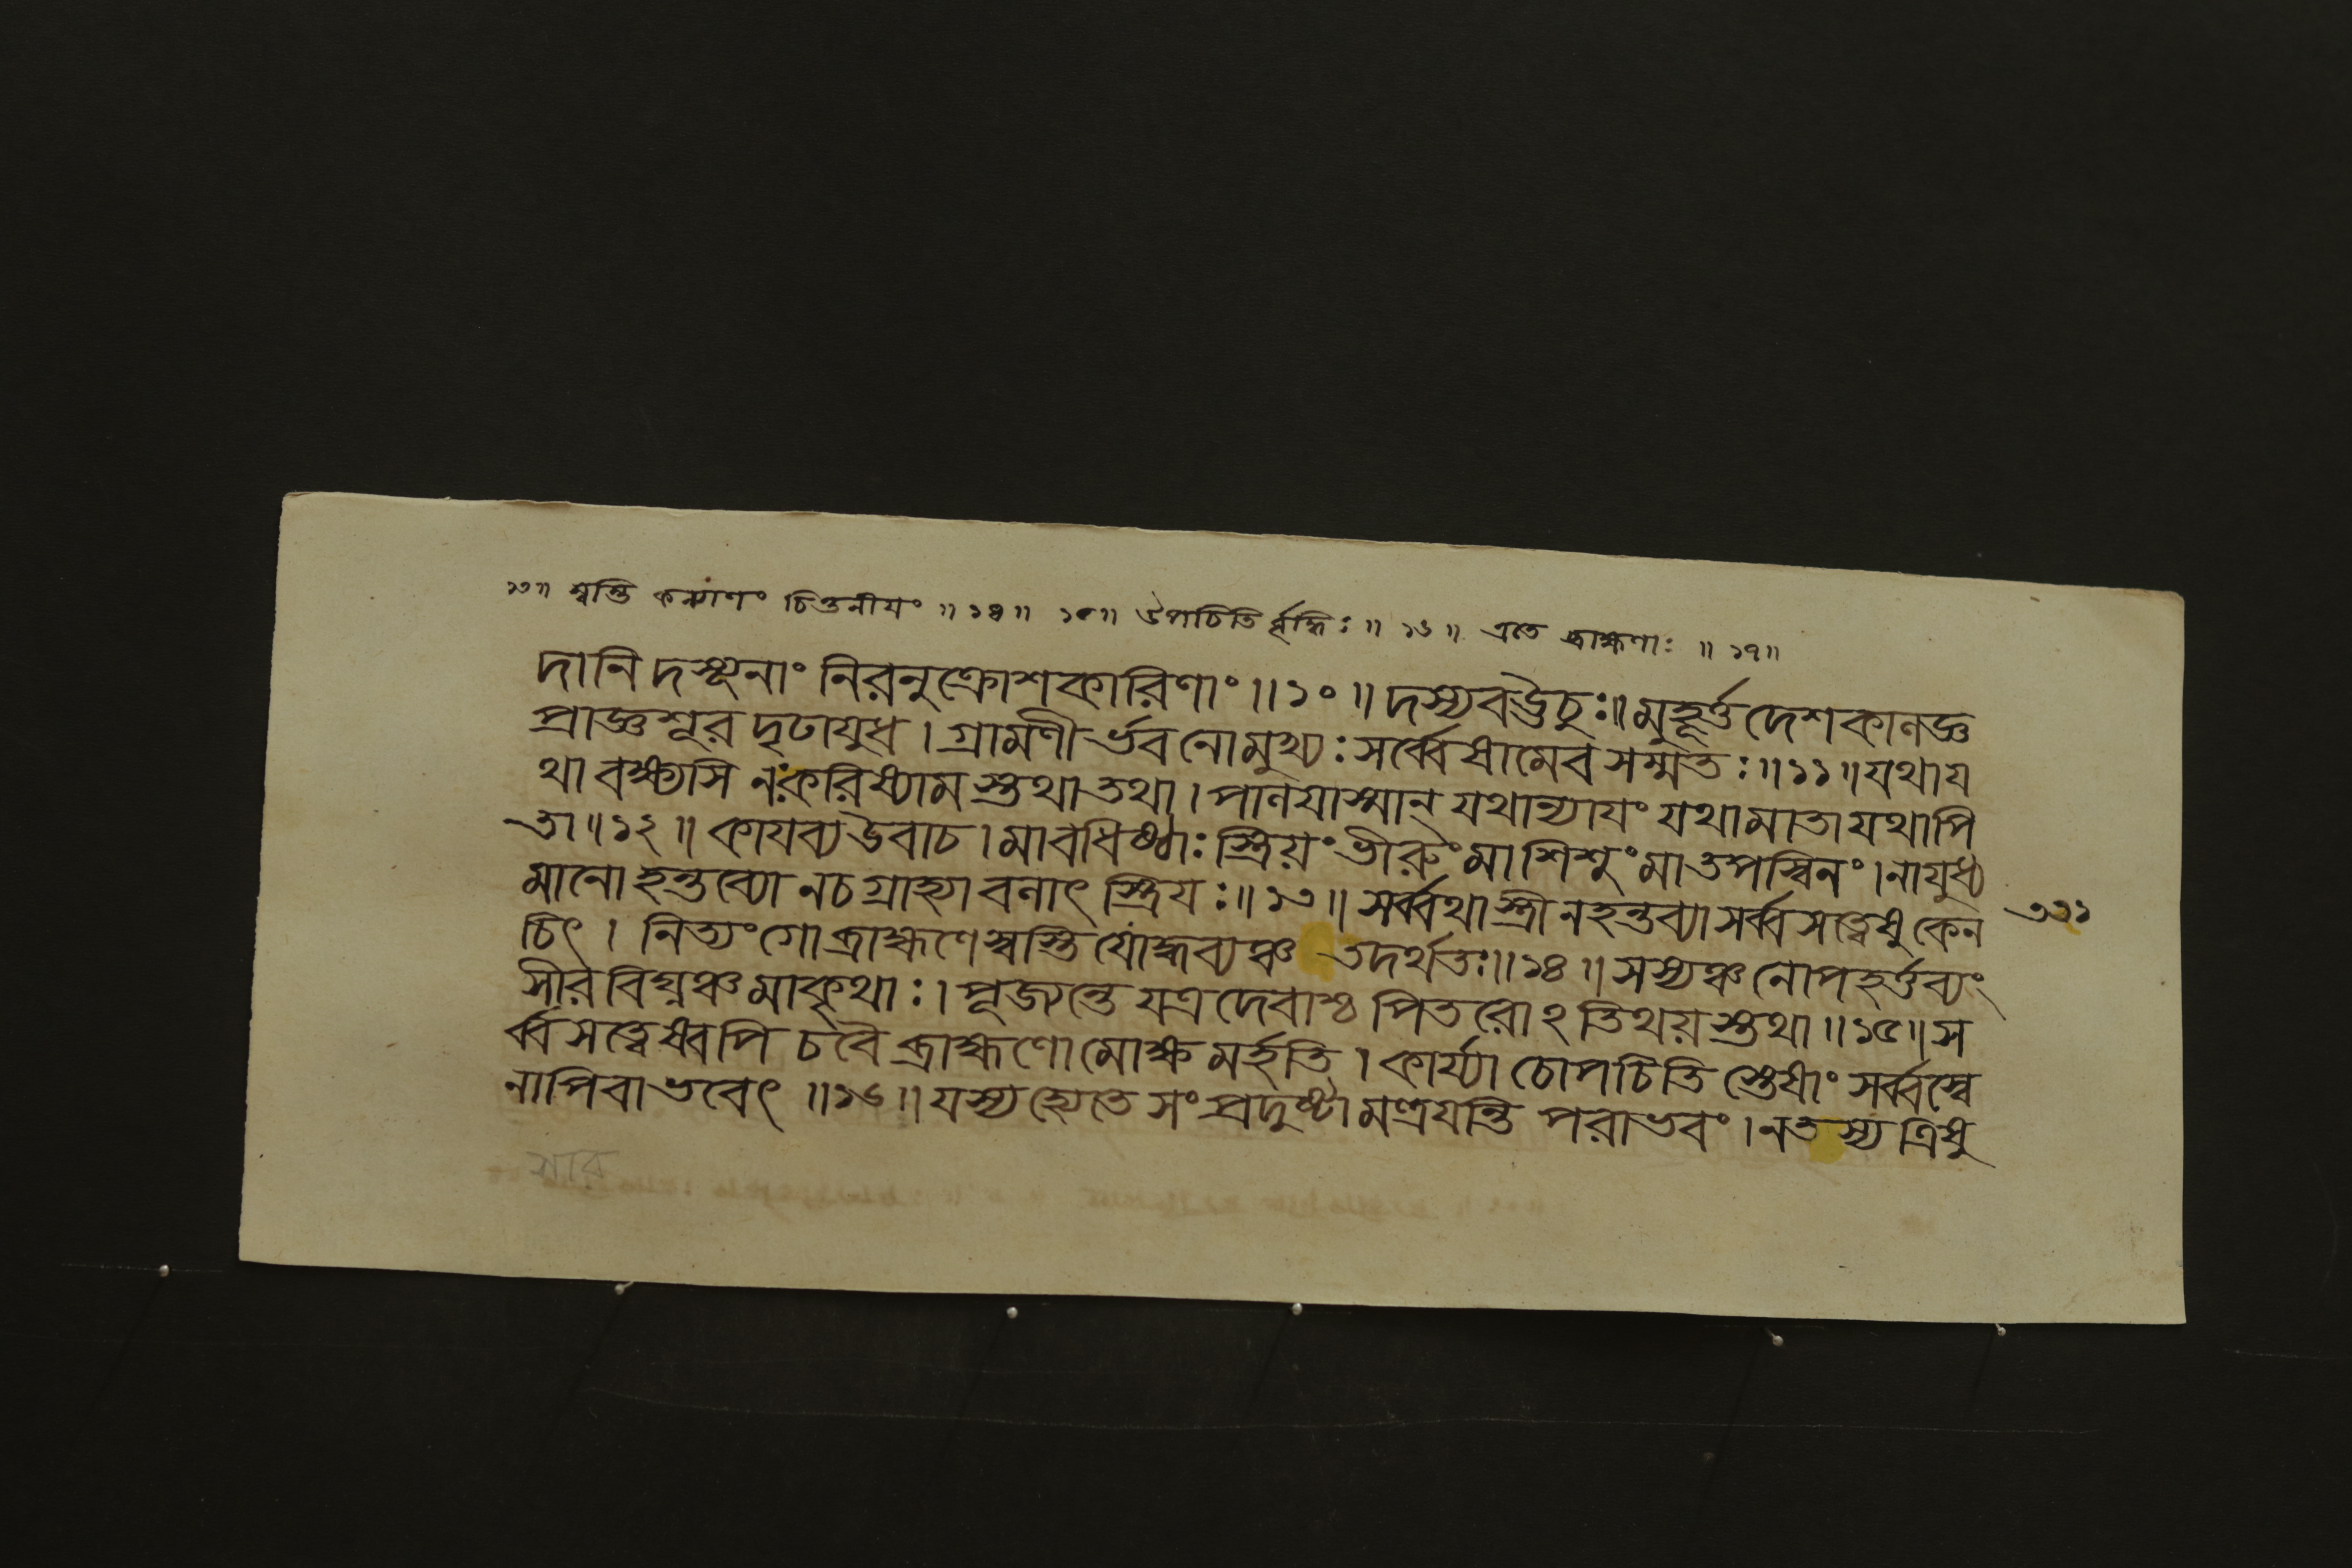 ১৩॥ স্বস্তি কল্যাণং চিন্তনীয়ং ॥ ১৪॥ ১৫॥ উপচিতি র্বৃদ্ধিঃ ॥ ১৬ ॥ এতে ব্রাহ্মণাঃ ॥ ১৭॥
দানি দস্যূনাং নিরনুক্রোশকারিণাং ॥ ১০ ॥ দস্যবঊচুঃ॥ মুহূর্ত্তদেশকালজ্ঞ
প্রাজ্ঞশূর দৃঢাযুধ । গ্রামণীর্ভব নো মুখ্যঃ সর্ব্বেষামেব সম্মতঃ ॥ ১১॥ যথা য
থা বক্ষ্যসি নঃ করিষ্যাম স্তথাতথা । পালযাস্মান্ যথান্যাযং যথামাতা যথাপি
তা ॥ ১২ ॥ কাযব্য উবাচ । মাবধিষ্ঠাঃ স্ত্রিয়ং ভীরুং মাশিশুং মাতপস্বিনং । নাযুধ্য
মানো হন্তব্যো নচ গ্রাহ্যা বলাৎ স্ত্রিযঃ ॥ ১৩ ॥ সর্ব্বথা স্ত্রী নহন্তব্যা সর্ব্বসত্ত্বেষু কেন
৩২১
চিৎ । নিত্যং গোব্রাহ্মণেস্বস্তি যোদ্ধব্যঞ্চ তদর্থতঃ॥ ১৪ ॥ সস্যঞ্চ নোপহর্ত্তব্যং
সীরবিঘ্নঞ্চ মাকৃথাঃ । পূজ্যন্তে যত্র দেবাশ্চ পিতরোঽতিথয়স্তথা ॥ ১৫॥ স
র্ব্বসত্ত্বেষ্বপি চ বৈ ব্রাহ্মণো মোক্ষমর্হতি । কার্য্যা চোপচিতি স্তেষাং সর্ব্বস্বে
নাপিবা ভবেৎ ॥ ১৬॥ যস্য হ্যেতে সংপ্রদুষ্টা মন্ত্রযন্তি পরাভবং । নতস্য ত্রিষু